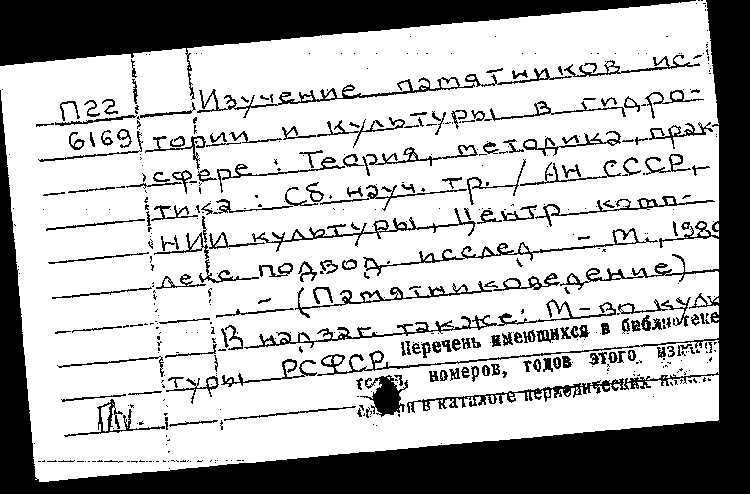 П22 Изучение памятников ис-
6169 тории и культуры в гидро-
сфере : Теория, методика, прак-
тика : Сб. науч. тр. / АН СССР,
НИИ культуры, Центр комп-
лекс. подвод. исслед. – М., 198
. – (Памятниковедение)
В надзаг. также: М-во куль
туры РСФСР.
Перечень имеющихся в библиотеке
номеров, годов этого
в каталоге периодических